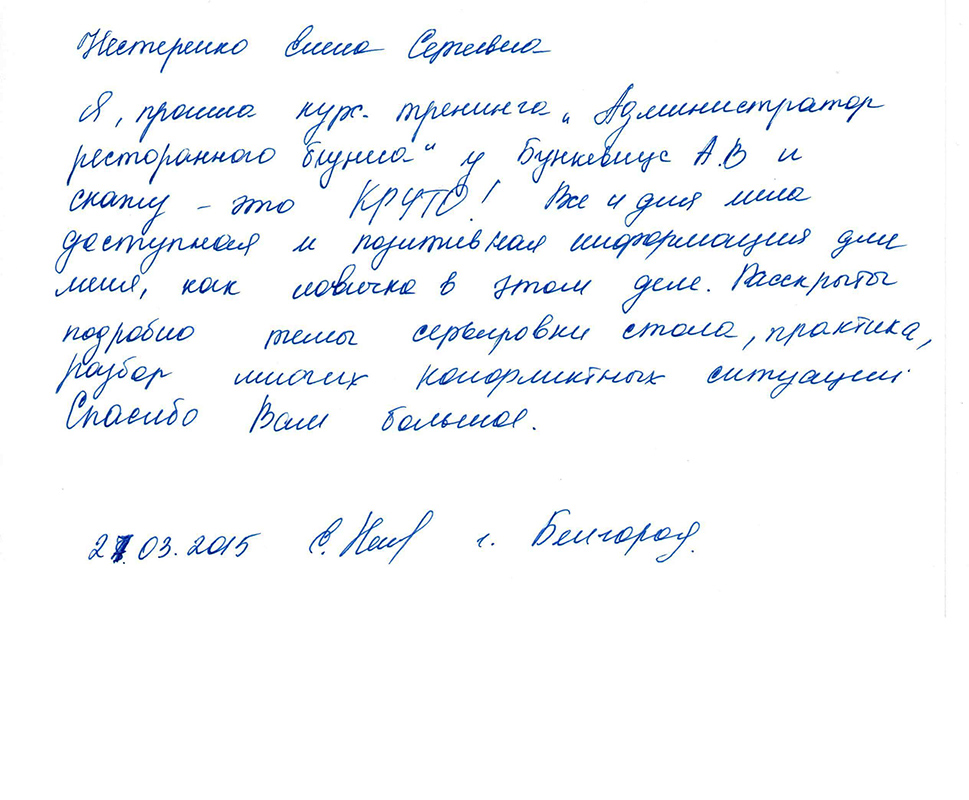 Нестеренко Елена Сергеевна
Я, прошла курс тренинга „Администратор
ресторанного бизнеса" у Бункевиус А.В и
скажу - это КРУТО! Все и для меня
доступная и позитивная информация для
меня, как новичка в этом деле. Расскрыты
подробно темы сервировки стола, практика,
разбор многих конфликтных ситуаций.
Спасибо Вам большое.
27.03.2015 г. Белгород.